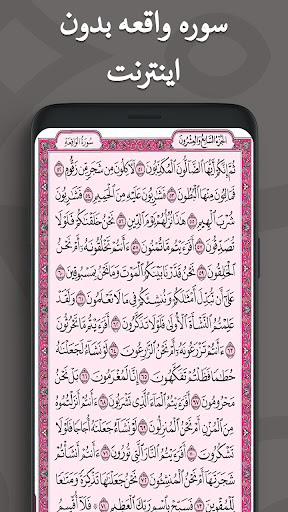 سوره واقعه بدون
اینترنت
الجزء السابع والعشرون
سورة الواقعة
ثُمَّ إِنَّكُمْ أَيُّهَا ٱلضَّآلُّونَ ٱلْمُكَذِّبُونَ ٥١ لَءَاكِلُونَ مِن شَجَرٍ مِّن زَقُّومٍ ٥٢
فَمَالِـُٔونَ مِنْهَا ٱلْبُطُونَ ٥٣ فَشَٰرِبُونَ عَلَيْهِ مِنَ ٱلْحَمِيمِ ٥٤ فَشَٰرِبُونَ
شُرْبَ ٱلْهِيمِ ٥٥ هَٰذَا نُزُلُهُمْ يَوْمَ ٱلدِّينِ ٥٦ نَحْنُ خَلَقْنَٰكُمْ فَلَوْلَا
تُصَدِّقُونَ ٥٧ أَفَرَءَيْتُم مَّا تُمْنُونَ ٥٨ ءَأَنتُمْ تَخْلُقُونَهُۥٓ أَمْ نَحْنُ
ٱلْخَٰلِقُونَ ٥٩ نَحْنُ قَدَّرْنَا بَيْنَكُمُ ٱلْمَوْتَ وَمَا نَحْنُ بِمَسْبُوقِينَ ٦٠
عَلَىٰٓ أَن نُّبَدِّلَ أَمْثَٰلَكُمْ وَنُنشِئَكُمْ فِى مَا لَا تَعْلَمُونَ ٦١ وَلَقَدْ
عَلِمْتُمُ ٱلنَّشْأَةَ ٱلْأُولَىٰ فَلَوْلَا تَذَكَّرُونَ ٦٢ أَفَرَءَيْتُم مَّا تَحْرُثُونَ
٦٣ ءَأَنتُمْ تَزْرَعُونَهُۥٓ أَمْ نَحْنُ ٱلزَّٰرِعُونَ ٦٤ لَوْ نَشَآءُ لَجَعَلْنَٰهُ
حُطَٰمًا فَظَلْتُمْ تَفَكَّهُونَ ٦٥ إِنَّا لَمُغْرَمُونَ ٦٦ بَلْ نَحْنُ
مَحْرُومُونَ ٦٧ أَفَرَءَيْتُمُ ٱلْمَآءَ ٱلَّذِى تَشْرَبُونَ ٦٨ ءَأَنتُمْ أَنزَلْتُمُوهُ
مِنَ ٱلْمُزْنِ أَمْ نَحْنُ ٱلْمُنزِلُونَ ٦٩ لَوْ نَشَآءُ جَعَلْنَٰهُ أُجَاجًا فَلَوْلَا
تَشْكُرُونَ ٧٠ أَفَرَءَيْتُمُ ٱلنَّارَ ٱلَّتِى تُورُونَ ٧١ ءَأَنتُمْ أَنشَأْتُمْ
شَجَرَتَهَآ أَمْ نَحْنُ ٱلْمُنشِـُٔونَ ٧٢ نَحْنُ جَعَلْنَٰهَا تَذْكِرَةً وَمَتَٰعًا
لِّلْمُقْوِينَ ٧٣ فَسَبِّحْ بِٱسْمِ رَبِّكَ ٱلْعَظِيمِ ٧٤ فَلَآ أُقْسِمُ